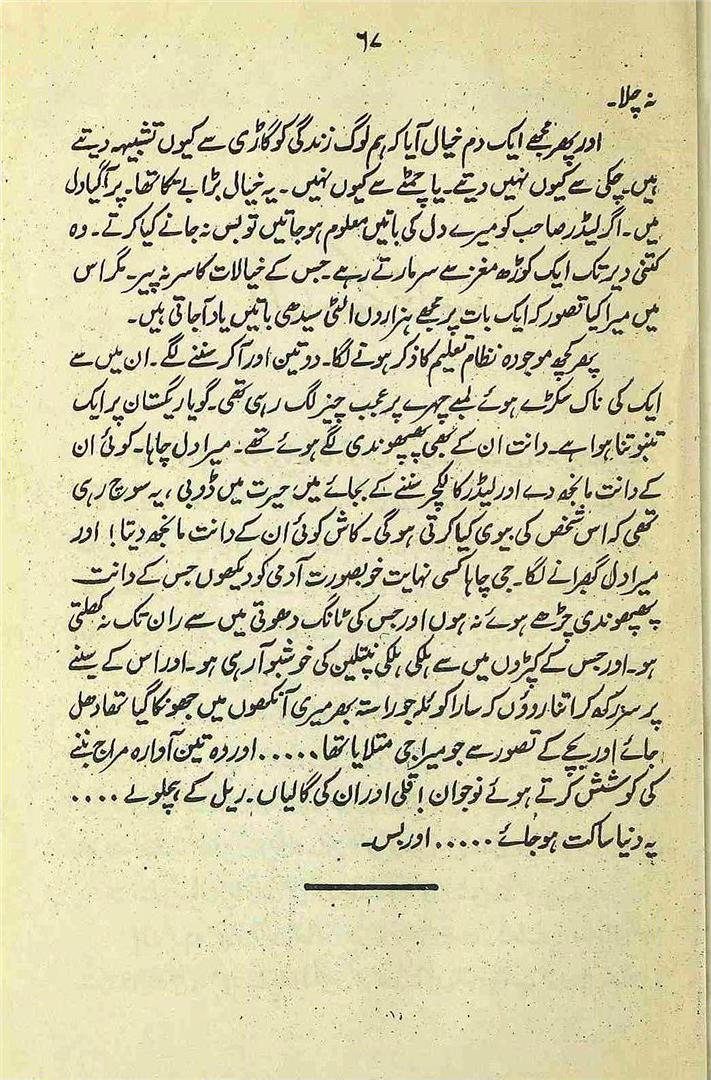 ٦٧
نہ چلا۔
اور پھر مجھے ایک دم خیال آیا کہ ہم لوگ زندگی کو گاڑی سے کیوں تشبیہہ دیتے
ہیں۔ چکی سے کیوں نہیں دیتے۔ یا چمٹے سے کیوں نہیں۔ یہ خیال بڑا بے تکا تھا۔ پر آ گیا دل
میں۔ اگر لیڈر صاحب کو میرے دل کی باتیں معلوم ہو جاتیں تو بس نہ جانے کیا کرتے۔ وہ
کتنی دیر تک ایک کوڑھ مغز سے سر مارتے رہے۔ جس کے خیالات کا سر نہ پیر۔ مگر اس
میں میرا کیا قصور کہ ایک بات پر مجھے ہزاروں الٹی سیدھی باتیں یاد آ جاتی ہیں۔
پھر کچھ موجودہ نظام تعلیم کا ذکر ہونے لگا۔ دو تین اور آ کر سننے لگے۔ ان میں سے
ایک کی ناک سکڑے ہوئے لمبے چہرے پر عجب چیز لگ رہی تھی۔ گویا ریگستان پر ایک
تنبو تنا ہوا ہے۔ دانت ان کے بھی پھپھوندی لگے ہوئے تھے۔ میرا دل چاہا۔ کوئی ان
کے دانت مانجھ دے اور لیڈر کا لکچر سننے کے بجائے میں حیرت میں ڈوبی، یہ سوچ رہی
تھی کہ اس شخص کی بیوی کیا کرتی ہوگی۔ کاش کوئی ان کے دانت مانجھ دیتا! اور
میرا دل گھبرانے لگا۔ جی چاہا کسی نہایت خوبصورت آدمی کو دیکھوں جس کے دانت
پھپھوندی چڑھے ہوئے نہ ہوں اور جس کی ٹانگ دھوتی میں سے ران تک نہ کھلتی
ہو۔ اور جس کے کپڑوں میں سے ہلکی ہلکی نپتلین کی خوشبو آ رہی ہو۔ اور اس کے سینے
پر سر رکھ کر اتنا روؤں کہ سارا کوئلہ جو راستہ بھر میری آنکھوں میں جھونکا گیا تھا دھل
جائے اور بچے کے تصور سے جو میرا جی متلایا تھا ..... اور وہ تین آوارہ مزاج بننے
کی کوشش کرتے ہوئے نوجوان! قلی اور ان کی گالیاں۔ ریل کے ہچکولے ....
یہ دنیا ساکت ہو جائے ..... اور بس۔